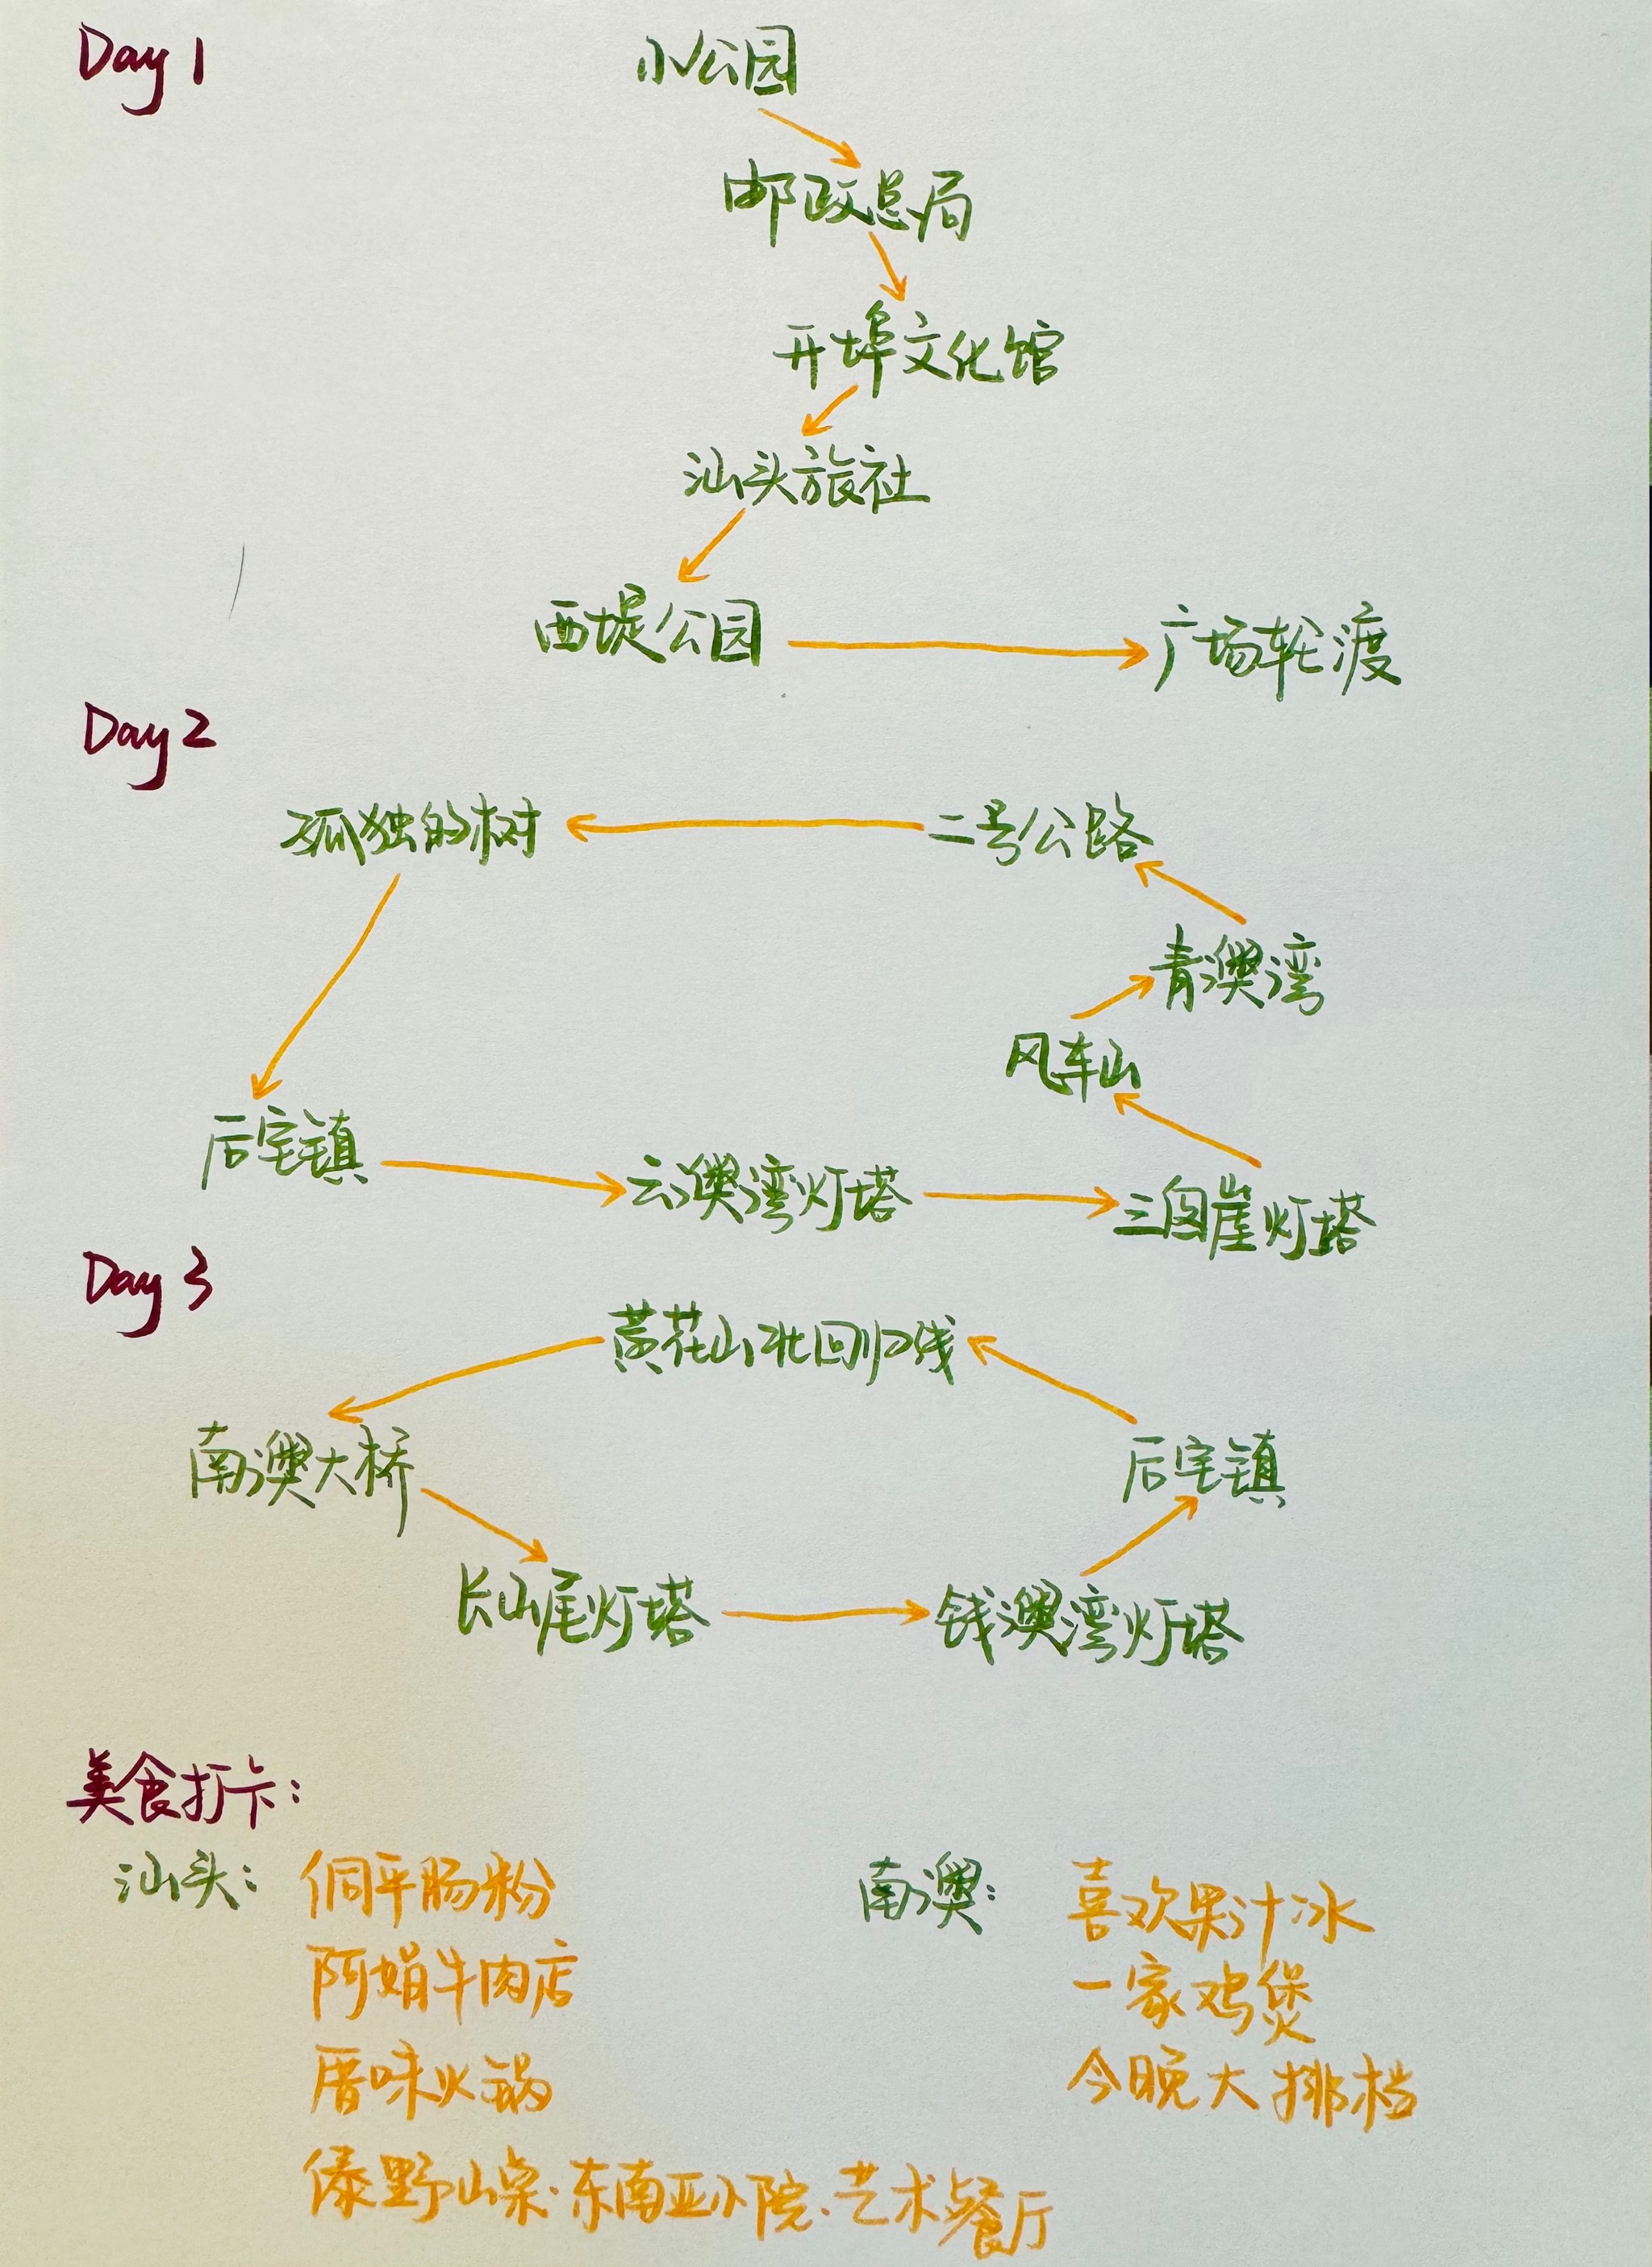 Day 1
小公园
邮政总局
开埠文化馆
汕头旅社
西堤公园 广场轮渡
Day 2
孤独的树 二号公路
青澳湾
风车山
后宅镇 云澳湾灯塔 三囱崖灯塔
Day 3
黄花山北回归线
南澳大桥 后宅镇
长山尾灯塔 钱澳湾灯塔
美食打卡：
汕头： 侗平肠粉 南澳： 喜欢果汁冰
阿娟牛肉店 一家鸡煲
厝味火锅 今晚大排档
傣野山寨·东南亚小院·艺术餐厅